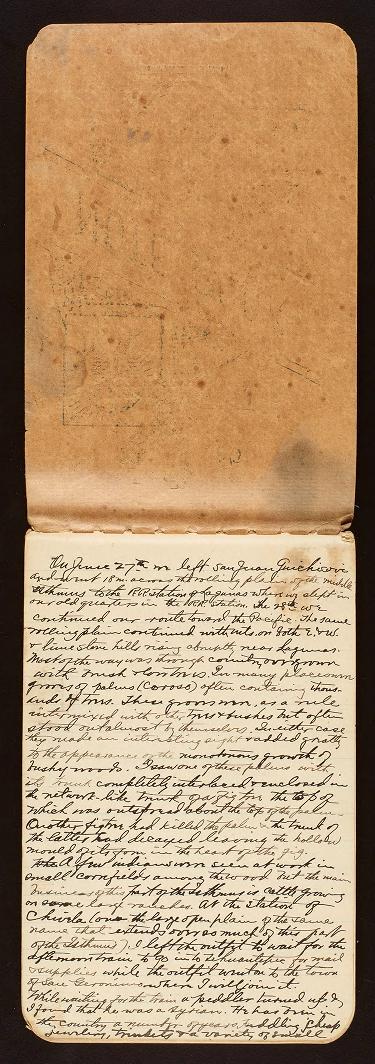 On June 27th we left San Juan Guichicovi
and went 18 m. across the rolling plains of the middle
isthmus to the RR station of Lagunas where we slept in
our old quarters in the RR. station. The 28th we
continued our route toward the Pacific. The same
rolling plain continued with hills on both E. & W.
& limestone hills rising abruptly near Lagunas.
Most of the way was through country overgrown
with brush & In many places were
groves of palms (Coroso) often containing thous-
ands of trees. These groves were, as a rule
intermixed with other trees & bushes but often
stood out almost by themselves. In either case
they made an interesting sight & added greatly
to the appearance of the monotonous growth of
brushy woods. I saw one of these palms with
its trunk completely interlaced & enclosed in
the network-like trunk of a fig tree the top of
which was outspread about the top of the palm.
Another fig tree had killed the palm & the trunk of
the latter had decayed leaving the hollow
mould of its form in the heart of the fig.
A few indians were seen at work in
small cornfields among the wood but the main
business of this part of the Isthmus is cattle growing
on some large ranches. At the station of
Chivela (on the large open plain of the same
name that extends over as much of this part
of the Isthmus), I left the outfit to wait for the
afternoon train to go in to Tehuantepec for mail
& supplies while the outfit went on to the town
of San Geronimo where I will join it.
While waiting for the train a peddler turned up &
I found that he was a Syrian. He has been in
the country a number of years peddling cheap
jewelry, trinkets & a variety of small